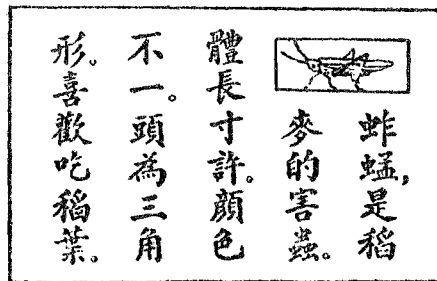 蚱蜢，是稻
麥的害蟲。
體長寸許。顏色
不一。頭為三角
形。喜歡吃稻葉。